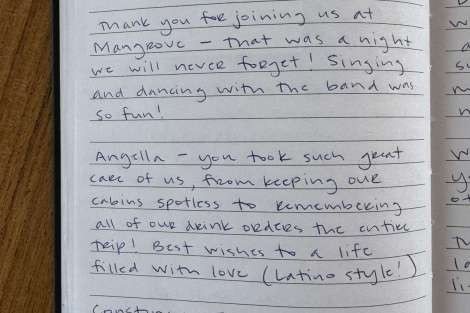 Thank you for joining us at
Mangrove - that was a night
we will never forget! Singing
and dancing with the band was
so fun!
Angella - you took such great
care of us, from keeping our
cabins spotless to remembering
all of our drink orders the entire
trip! Best wishes to a life
filled with love (Latino style!)